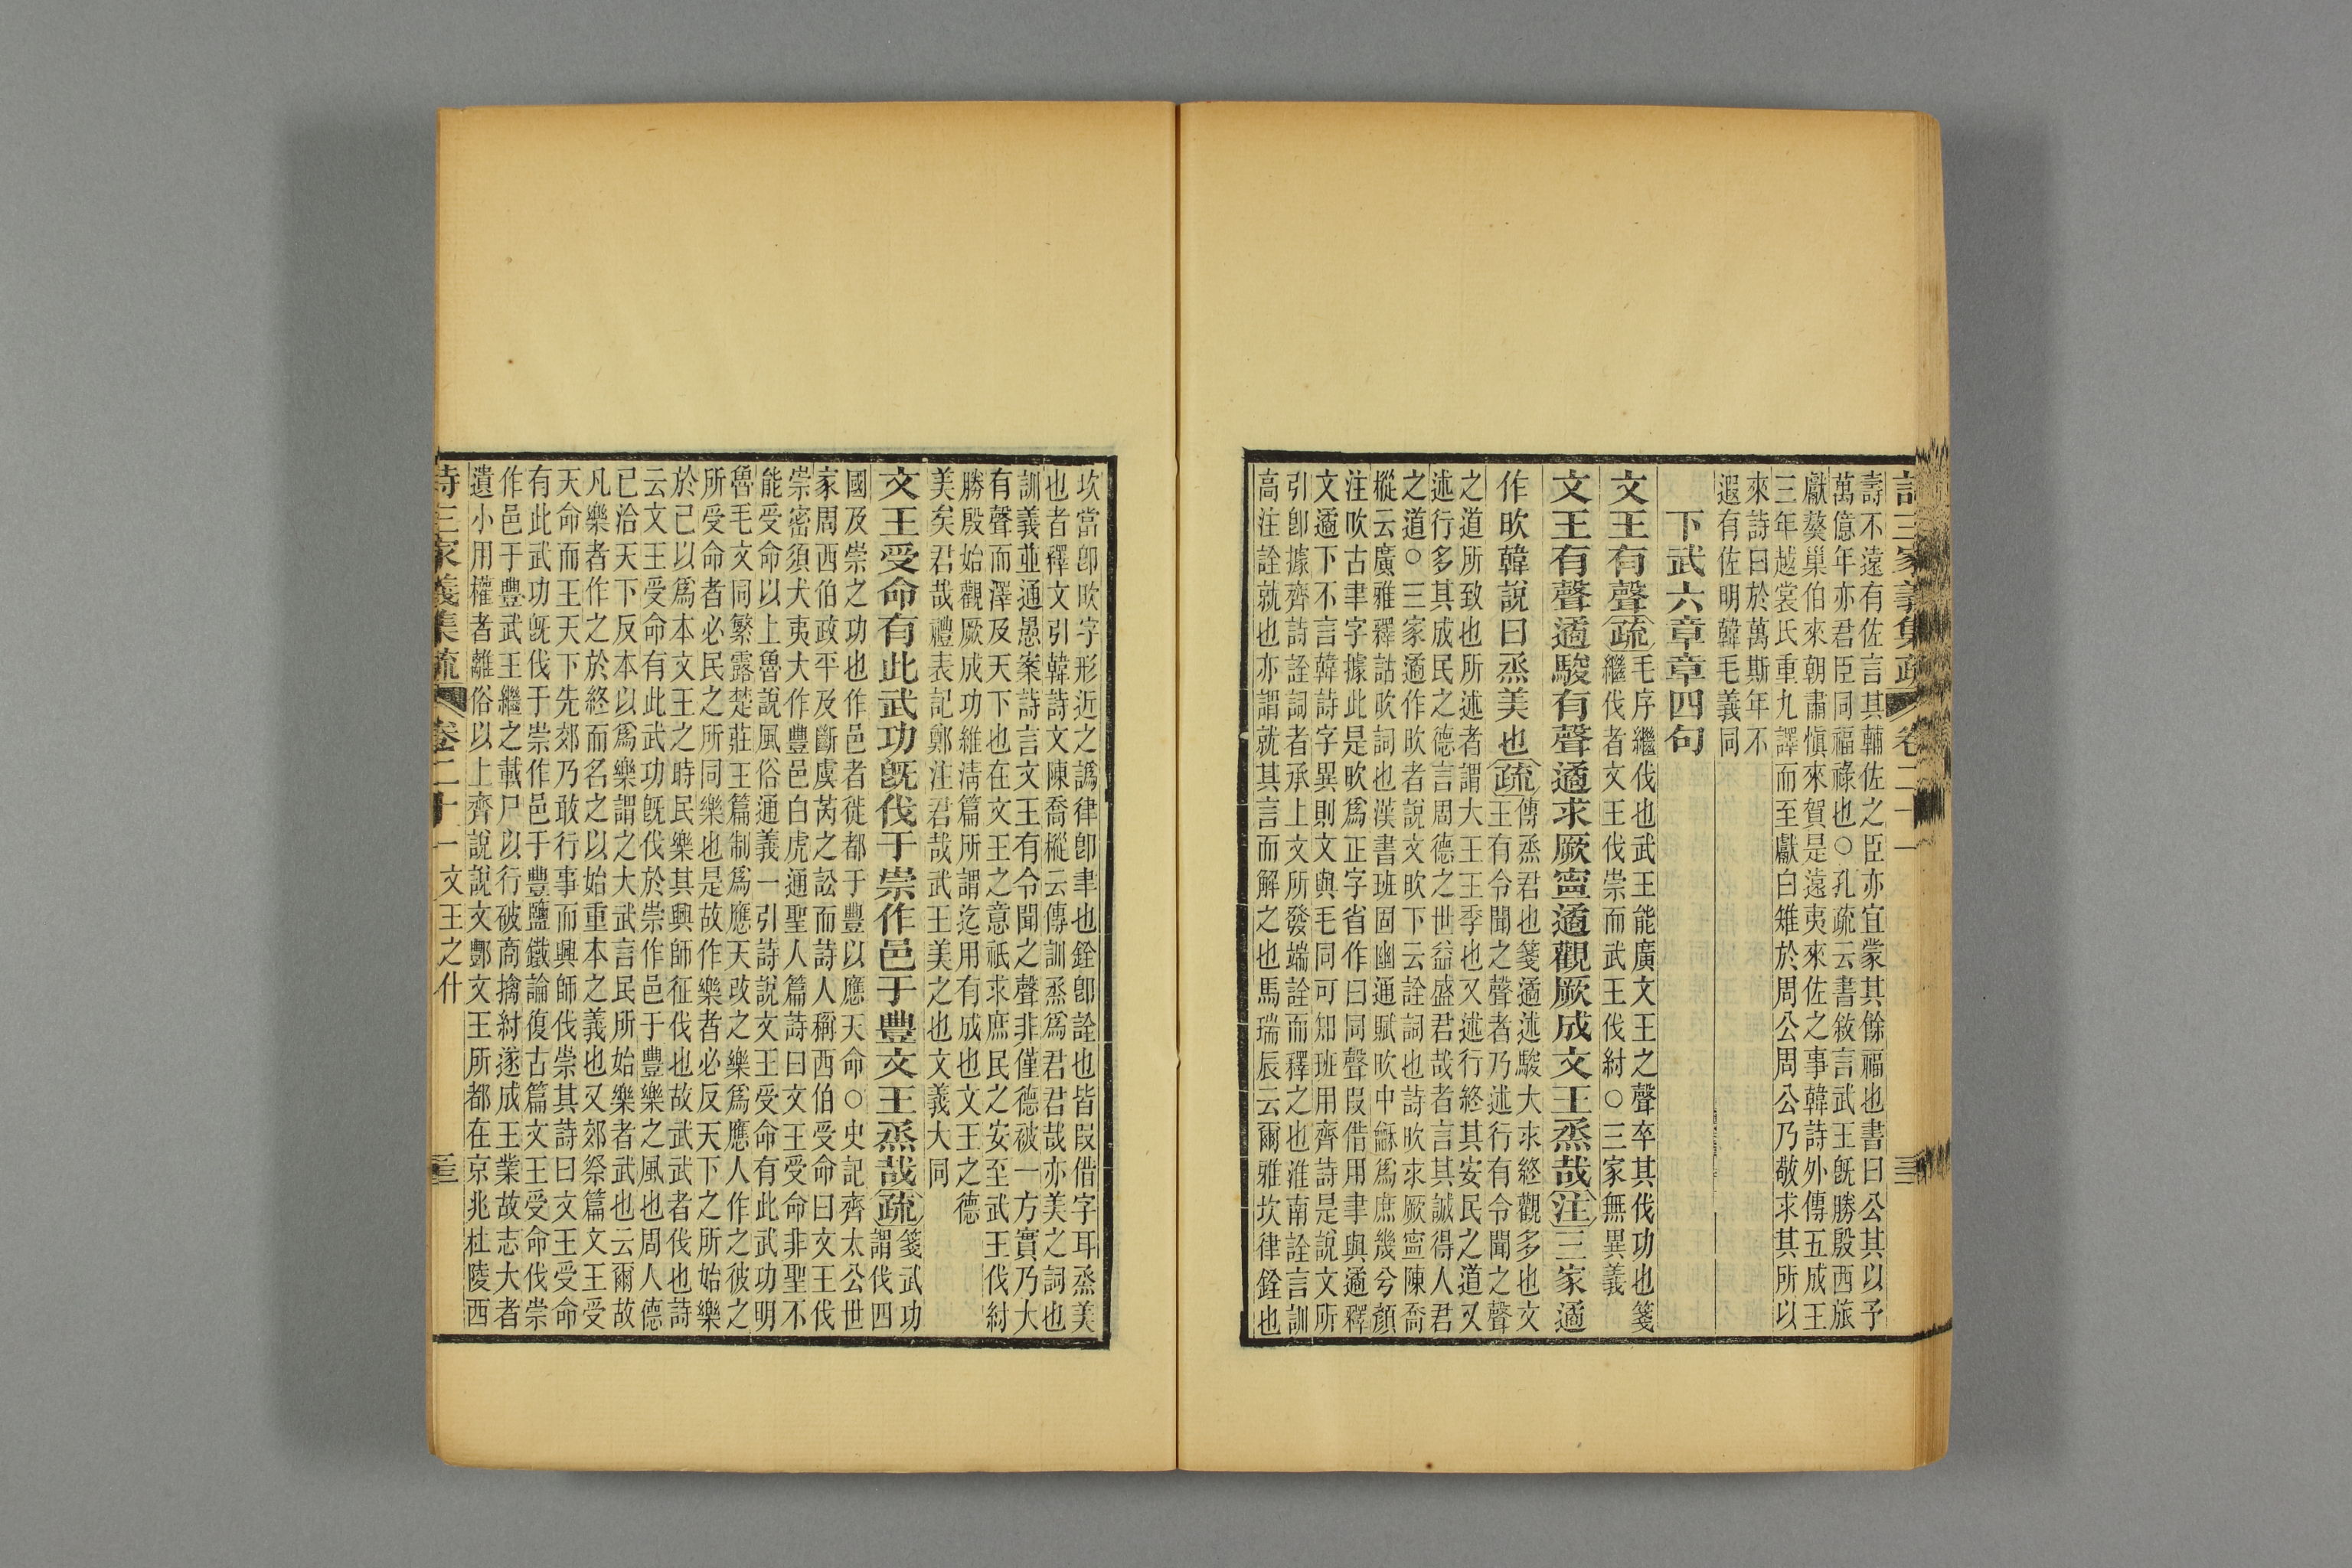 詩三家義集疏 卷二十一
壽不遠有佐言其輔佐之臣亦宜蒙其餘福也書曰公其以予
萬億年亦君臣同福祿也○孔疏云書敘言武王旣勝殷西旅
獻獒巢伯來朝肅愼來賀是遠夷來佐之事韓詩外傳五成王
三年越裳氏重九譯而至獻白雉於周公周公乃敬求其所以
來詩曰於萬斯年不
遐有佐明韓毛義同
下武六章章四句
文王有聲疏毛序繼伐也武王能廣文王之聲卒其伐功也箋
繼伐者文王伐崇而武王伐紂○三家無異義
文王有聲遹駿有聲遹求厥寍遹觀厥成文王烝哉注三家遹
作欥韓說曰烝美也疏傳烝君也箋遹述駿大求終觀多也文
王有令聞之聲者乃述行有令聞之聲
之道所致也所述者謂大王王季也又述行終其安民之道又
述行多其成民之德言周德之世益盛君哉者言其誠得人君
之道○三家遹作欥者說文欥下云詮詞也詩欥求厥寍陳喬
樅云廣雅釋詁欥詞也漢書班固幽通賦欥中龢爲庶幾兮顏
注欥古聿字據此是欥爲正字省作曰同聲叚借用聿與遹釋
文遹下不言韓詩字異則文與毛同可知班用齊詩是說文所
引卽據齊詩詮詞者承上文所發端詮而釋之也淮南詮言訓
高注詮就也亦謂就其言而解之也馬瑞辰云爾雅坎律銓也
坎當卽欥字形近之譌律卽聿也銓卽詮也皆叚借字耳烝美
也者釋文引韓詩文陳喬樅云傳訓烝爲君君哉亦美之詞也
訓義並通愚案詩言文王有令聞之聲非僅德被一方實乃大
有聲而澤及天下也在文王之意祇求庶民之安至武王伐紂
勝殷始觀厥成功維淸篇所謂迄用有成也文王之德
美矣君哉禮表記鄭注君哉武王美之也文義大同
文王受命有此武功旣伐于崇作邑于豐文王烝哉疏箋武功
謂伐四
國及崇之功也作邑者徙都于豐以應天命○史記齊太公世
家周西伯政平及斷虞芮之訟而詩人稱西伯受命曰文王伐
崇密須犬夷大作豐邑白虎通聖人篇詩曰文王受命非聖不
能受命以上魯說風俗通義一引詩說文王受命有此武功明
魯毛文同繁露楚莊王篇制爲應天改之樂爲應人作之彼之
所受命者必民之所同樂也是故作樂者必反天下之所始樂
於己以爲本文王之時民樂其興師征伐也故武武者伐也詩
云文王受命有此武功旣伐於崇作邑于豐樂之風也周人德
已洽天下反本以爲樂謂之大武言民所始樂者武也云爾故
凡樂者作之於終而名之以始重本之義也又郊祭篇文王受
天命而王天下先郊乃敢行事而興師伐崇其詩曰文王受命
有此武功旣伐于崇作邑于豐鹽鐵論復古篇文王受命伐崇
作邑于豐武王繼之載尸以行破商擒紂遂成王業故志大者
遺小用權者離俗以上齊說說文酆文王所都在京兆杜陵西
詩三家義集疏 卷二十一 文王之什 三